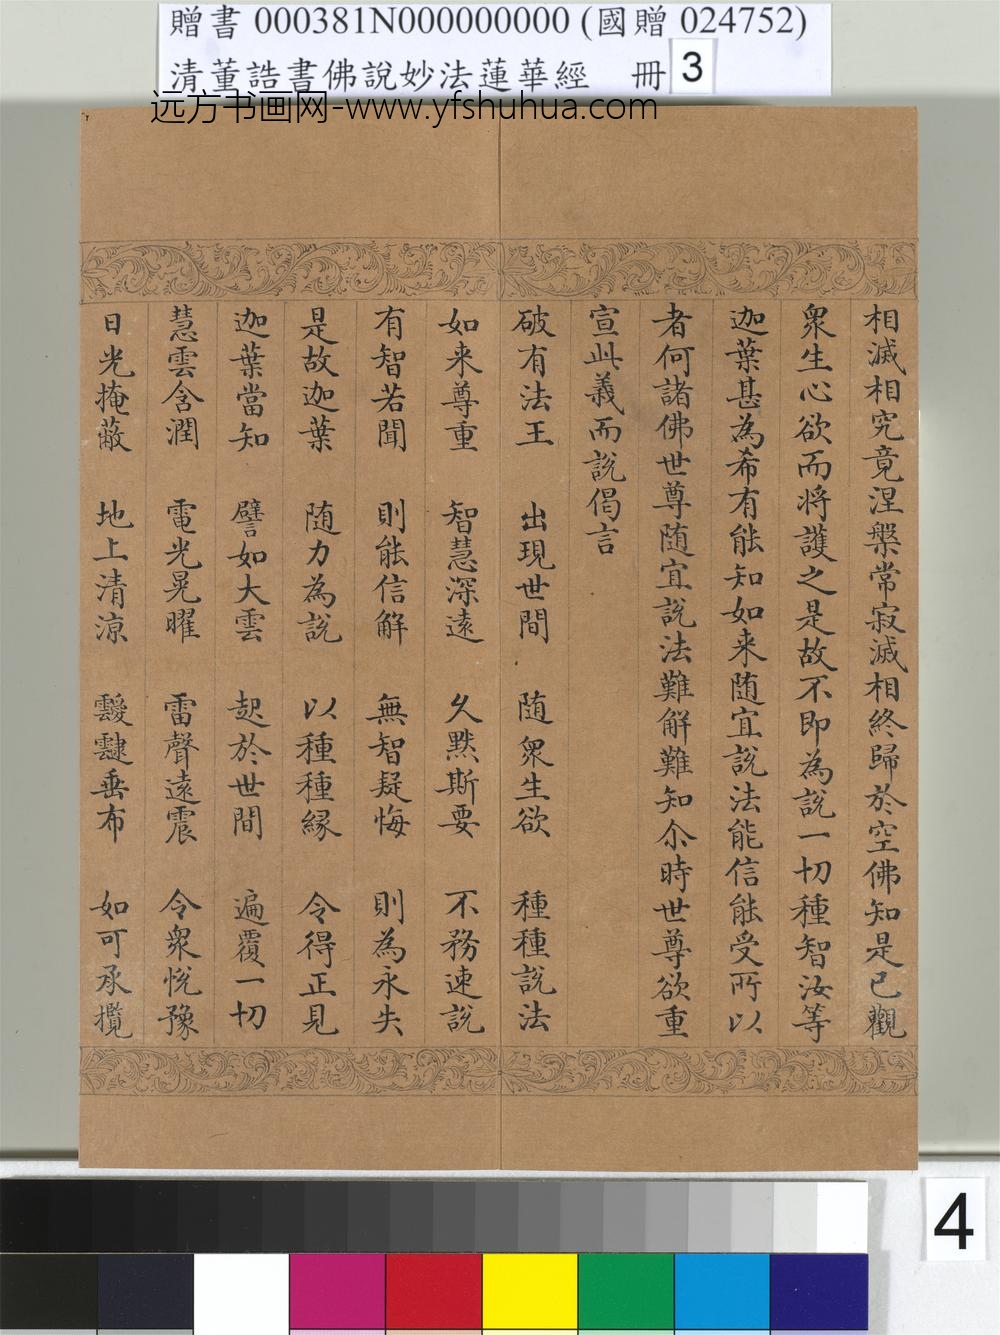 贈書 000381N000000000 (國贈 024752)
清董誥書佛說妙法蓮華經 冊 3
远方书画网-www.yfshuhua.com
相滅相究竟涅槃常寂滅相終歸於空佛知是已觀
衆生心欲而將護之是故不即為說一切種智汝等
迦葉甚為希有能知如来随宜說法能信能受所以
者何諸佛世尊随宜說法難解難知尒時世尊欲重
宣此義而說偈言
破有法王 出現世間 随衆生欲 種種說法
如来尊重 智慧深遠 久默斯要 不務速說
有智若聞 則能信解 無智疑悔 則為永失
是故迦葉 随力為說 以種種緣 令得正見
迦葉當知 譬如大雲 起於世間 遍覆一切
慧雲含潤 電光晃曜 雷聲遠震 令衆悅豫
日光掩蔽 地上清涼 靉靆垂布 如可承攬
4